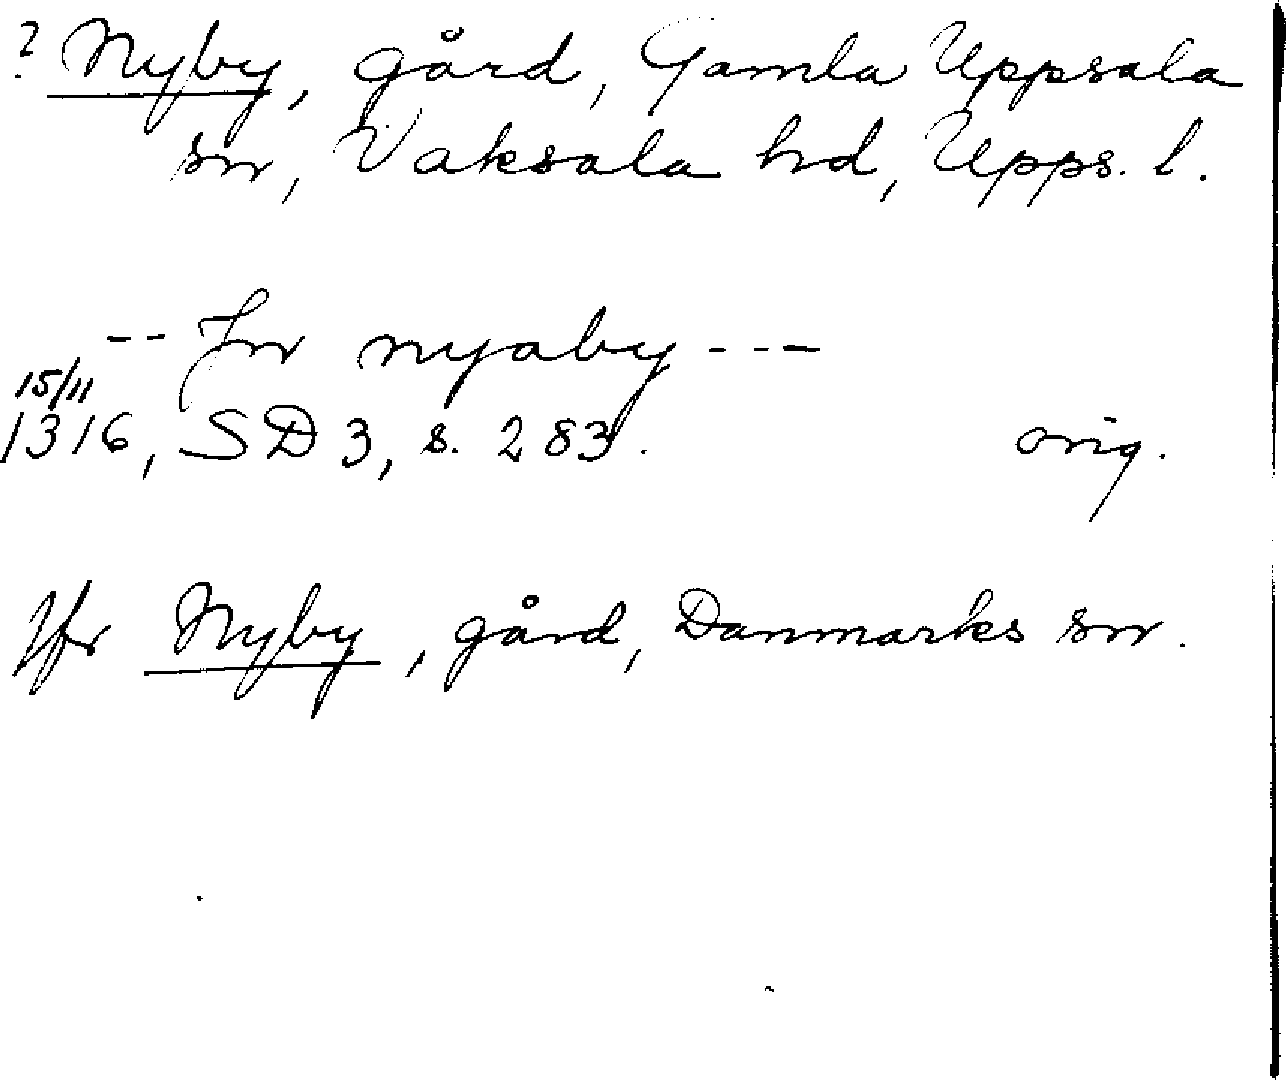 ? Nyby, gård, Gamla Uppsala
sn, Vaksala hd, Upps. l.
-- In nyaby ---
15/11
1316, SD 3, s. 283. orig.
Jfr Nyby, gård, Danmarks sn.